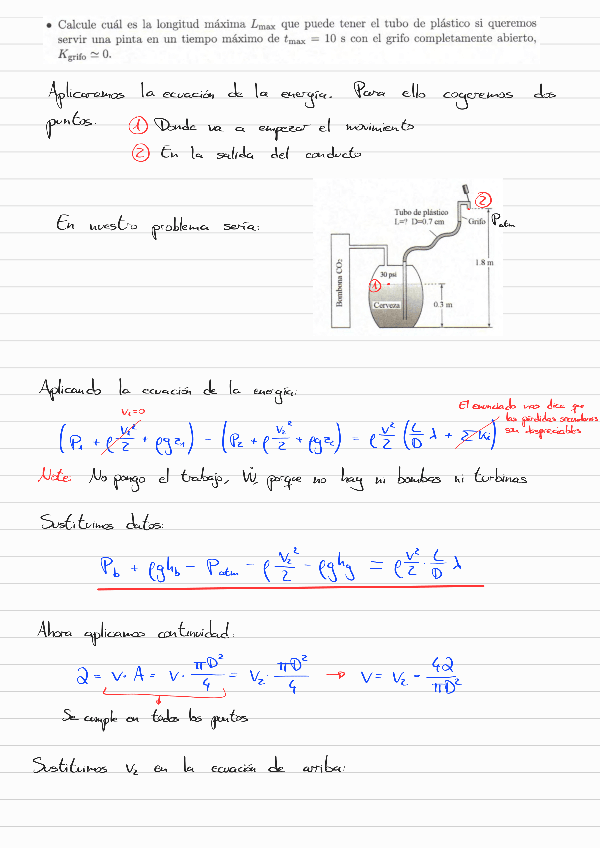 • Calcule cuál es la longitud máxima Lmax que puede tener el tubo de plástico si queremos
servir una pinta en un tiempo máximo de tmax = 10 s con el grifo completamente abierto,
Kgrifo ≃ 0.
Aplicaremos la ecuación de la energía. Para ello cogeremos dos
puntos. ① Donde va a empezar el movimiento
② En la salida del conducto
En nuestro problema sería:
②
Tubo de plástico
L=? D=0.7 cm
Grifo
Patm
Bombona CO₂
1.8 m
30 psi
①
Cerveza
0.3 m
Aplicando la ecuación de la energía:
V₁=0
El enunciado nos dice que
las pérdidas secundarias
son despreciables
(P₁ + ρ V₁²/2 + ρgz₁) − (P₂ + ρ V₂²/2 + ρgz₂) = ρ V²/2 (L/D λ + ΣKi)
Nota: No pongo el trabajo, Ẇ, porque no hay ni bombas ni turbinas
Sustituimos datos:
Pb + ρghb − Patm − ρ V₂²/2 − ρghg = ρ V²/2 · L/D λ
Ahora aplicamos continuidad:
Q = V · A = V · πD²/4 = V₂ · πD²/4 → V = V₂ = 4Q/πD²
Se cumple en todos los puntos
Sustituimos V₂ en la ecuación de arriba: